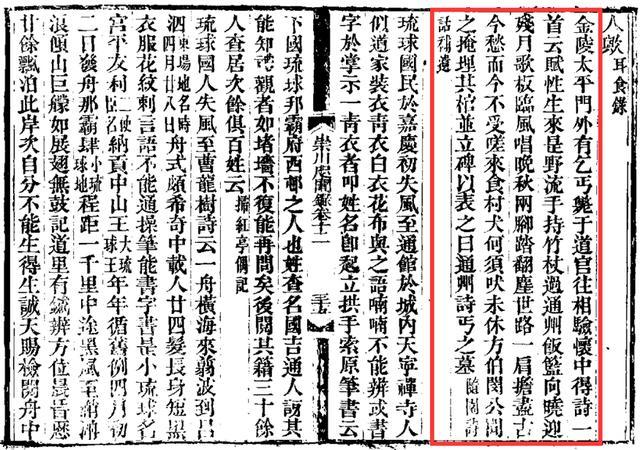 耳食錄
金陵太平門外有乞丐斃于道官往相驗懷中得詩一
首云賦性生來是野流手持竹杖過通州飯籃向曉迎
殘月歌板臨風唱晚秋兩腳踏翻塵世路一肩擔盡古
今愁而今不受嗟來食村犬何須吠未休方伯閔公聞
之掩埋其棺並立碑以表之曰通州詩丐之墓隨園詩
話補遺
琉球國民於嘉慶初失風至通館於城內天寧禪寺人
似道家裝衣青衣白衣花布與之語喃喃不能辨或書
字於掌示一青衣者叩姓名卽起立拱手索原筆書云
崇川咫聞錄卷十二
下國琉球那霸府西邨之人也姓查名國吉通人訝其
能知書觀者如堵墻不復能再問矣後閱其籍三十餘
人查居次餘俱百姓云摛紅亭偶記
琉球國人失風至曹龍樹詩云一舟橫海來翻波到呂
泗東場地名時四月廿八日舟式頗希奇中載人廿四髮長身短黑
衣服花紋刺言語不能通操筆能書字書是小琉球名
宮平友利二使臣名納貢中山王大琉球王年年循舊例四月初
二日發舟那霸肆小琉球地名程距一千里中途黑風至
浪傾山巨艨如展翅無鼓記道里有鍼辨方位晨昏歷
廿餘飄泊此岸次自分不能生得生誠天賜檢閱舟中